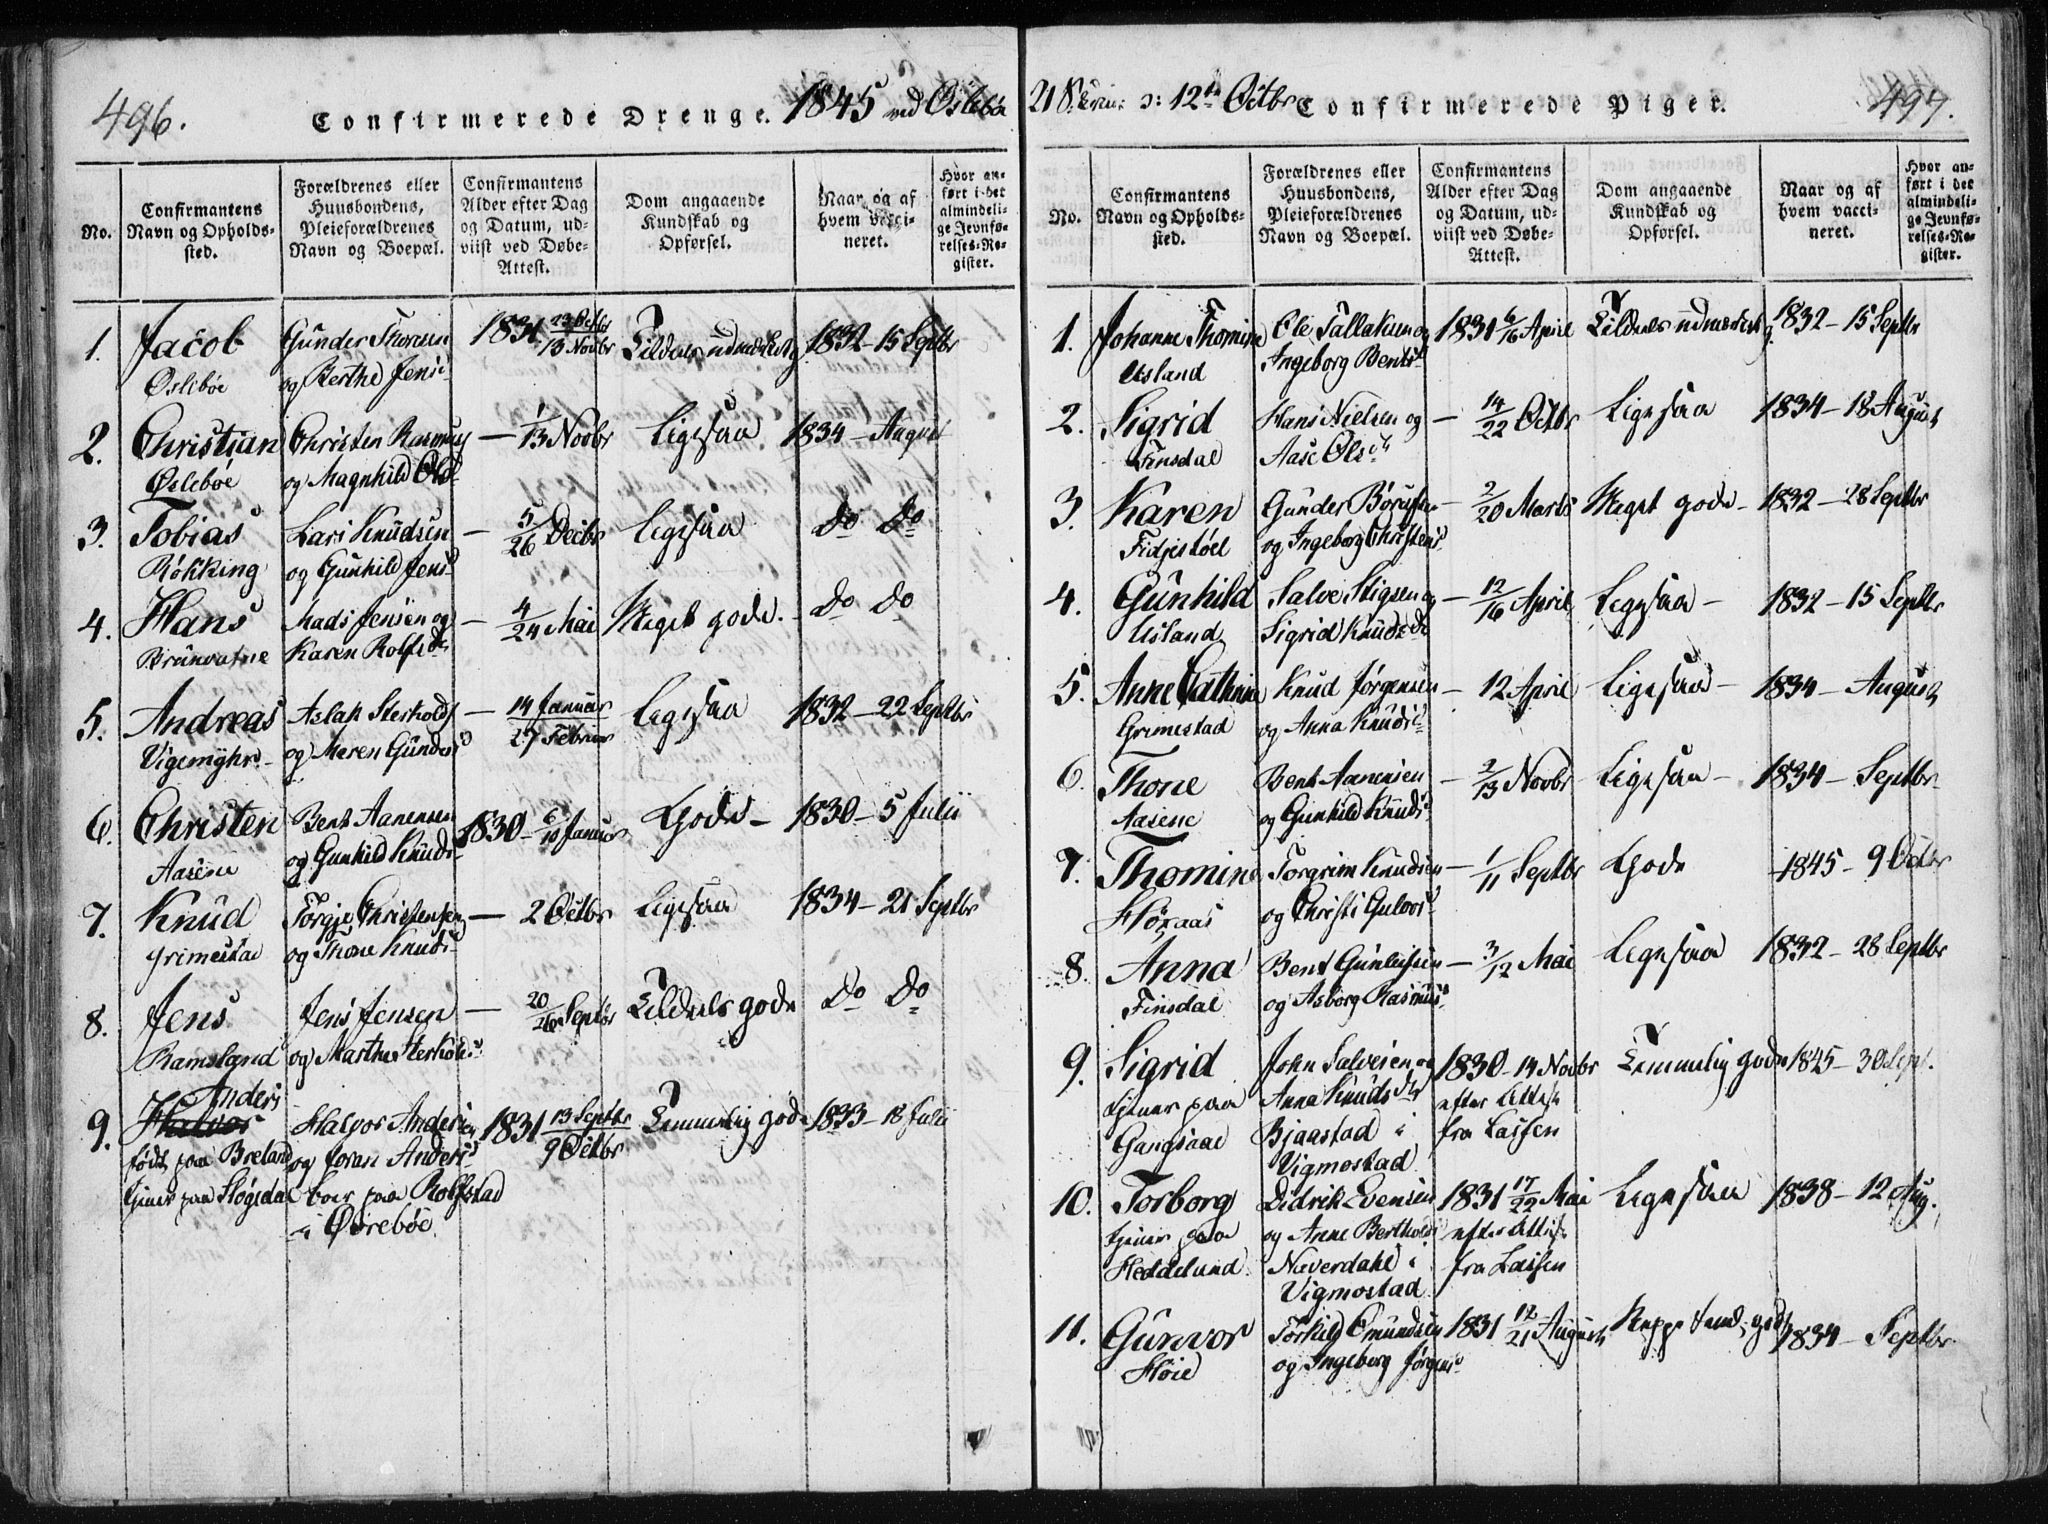 496.
Confirmerede Drenge. 1845 ved Øslebøe
No.
Confirmantens Navn og Opholdssted.
Forældrenes eller Huusbondens, Pleieforældrenes Navn og Boepæl.
Confirmantens Alder efter Dag og Datum, udviist ved Døbe-Attest.
Dom angaaende Kundskab og Opførsel.
Naar og af hvem vaccineret.
Hvor anført i det almindelige Jevnførelses-Register.
1. Jacob Gunder Thorsen 1831 23 Octbr
Øslebøe og Berthe Jens 13 Novbr Særdeles udmærket g. 1832 - 15 Septbr
2. Christian Christen Rasmus — 1/13 Novbr Ligesaa 1834 - August
Øslebøe og Magnhild Ols
3. Tobias Lars Knudsen — 5/26 Decbr Ligesaa Do Do
Røkking og Gunhild Jens
4. Hans Mads Jensen og — 4/24 Mai Meget gode. Do Do
Karen Rolfsd
5. Andreas Aslak Sterkolds — 14 Januar Ligesaa 1832 - 22 Septbr
Vigemyhr og Maren Gunders 27 Februar
6. Christen Bent Aanensen 1830 - 6/10 Januar Gode - 1830 - 5 Julii
Aasene og Gunhild Knuds
7. Knud Torgje Christensen — 2 Octbr Ligesaa 1834 - 21 Septbr
Grimestad og Thone Knuds
8. Jens Jens Jensen — 20/26 Septbr Særdeles gode Do Do
Ramsland og Marthe Sterkolds
Anders
9. Halvor Halvor Andersen 1831 13 Septbr Temmelig gode 1833 - 18 Julii
født paa Breland og Joran Anders 9 Octbr
tjener paa Høgsdal boer paa Rolfstad
i Øvrebøe

12te Octbr Confirmerede Piger.
497.
No.
Confirmantens Navn og Opholdssted.
Forældrenes eller Huusbondens, Pleieforældrenes Navn og Boepæl.
Confirmantens Alder efter Dag og Datum, udviist ved Døbe-Attest.
Dom angaaende Kundskab og Opførsel.
Naar og af hvem vaccineret.
Hvor anført i det almindelige Jevnførelses-Register.
1. Johanne Thomine Ole Tallaksen og 1831 6/16 April Særdeles udmærket g. 1832 - 15 Septbr
Usland Ingeborg Bents
2. Sigrid Hans Nielsen og — 14/22 Octbr Ligesaa 1834 - 18 August
Finsdal Aase Ols
3. Karen Gunder Børufsen — 2/20 Marts Meget gode - 1832 - 28 Septbr
Fidjestøel og Ingeborg Christens
4. Gunhild Salve Stigsen og — 12/16 April Ligesaa - 1832 - 15 Septbr
Usland Sigrid Knudsd
5. Anne Cathrine Knud Jørgensen — 12 April Ligesaa - 1834 - August
Grimestad og Anna Knuds
6. Thone Bent Aanensen — 2/13 Novbr Ligesaa - 1834 - Septbr
Aasene og Gunhild Knuds
7. Thomine Torgrim Knudsen — 1/11 Septbr Gode 1845 - 9 Octbr
og Christi Gulovs
8. Anna Bent Gunleifsen — 3/12 Mai Ligesaa 1832 - 28 Septbr
Finsdal og Asborg Rasmus
9. Sigrid John Salvesen og 1830 - 14 Novbr Temmelig gode 1845 - 30 Sept.
tjener paa Anna Knudsdtr efter Attest
Gangsaae Bjaastad i fra Lassen
Vigmostad
10. Torborg Didrik Evensen 1831 17/22 Mai Ligesaa 1838 - 12 Aug.
tjener paa og Anne Bertholds efter Attest
Heddelund Naverdahl i fra Lassen
Vigmostad
11. Gunvor Torkild Emundsen 1831 12/21 August 1834 - Septbr
Høie og Ingeborg Jørgens